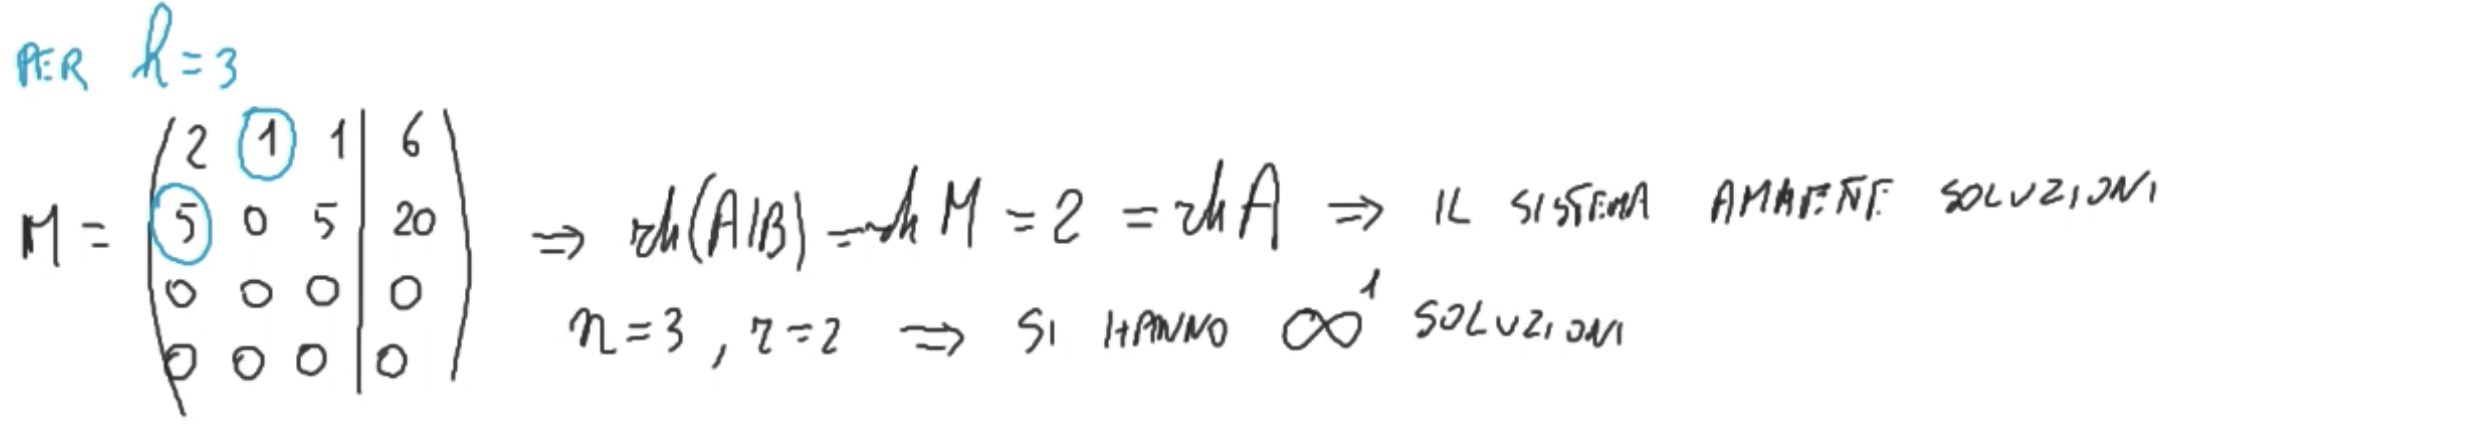 PER h=3
M = (2 1 1 | 6
5 0 5 | 20
0 0 0 | 0
0 0 0 | 0)
⇒ rk(A|B) = rk M = 2 = rk A ⇒ IL SISTEMA AMMETTE SOLUZIONI
n=3, r=2 ⇒ SI HANNO ∞¹ SOLUZIONI